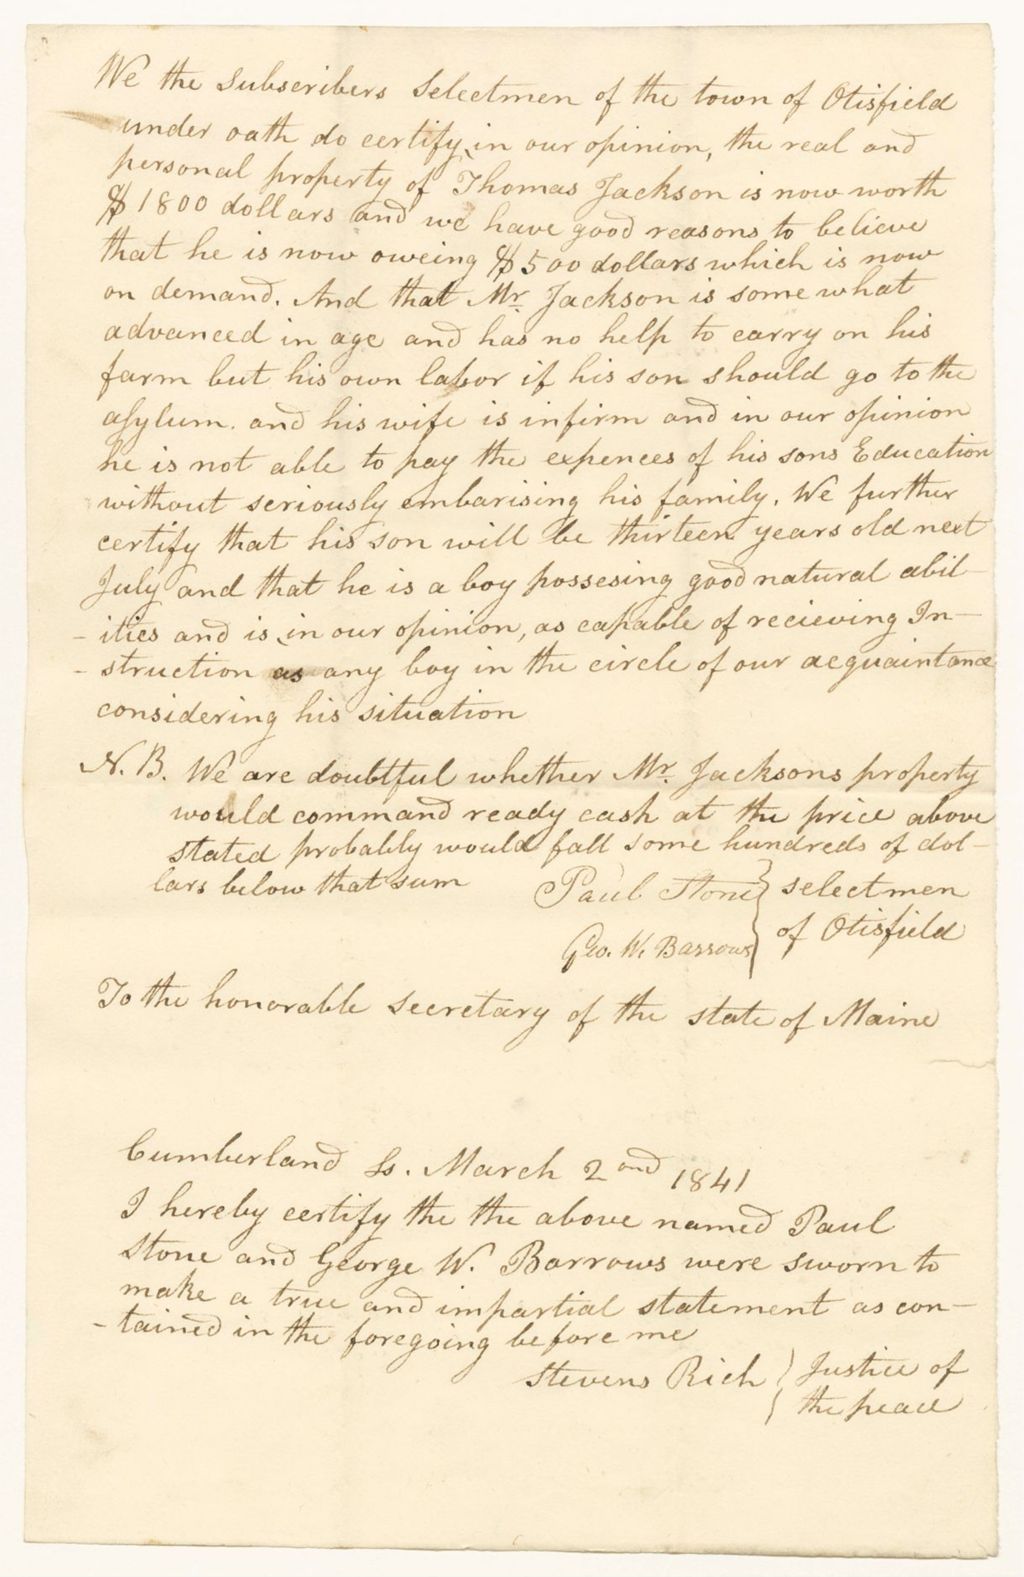 We the Subscribers Selectmen of the town of Otisfield
under oath do certify, in our opinion, the real and
personal property of Thomas Jackson is now worth
$1800 dollars and we have good reasons to believe
that he is now oweing $500 dollars which is now
on demand. And that Mr. Jackson is some what
advanced in age and has no help to carry on his
farm but his own labor if his son should go to the
asylum. and his wife is infirm and in our opinion
he is not able to pay the expences of his sons Education
without seriously embarising his family. We further
certify that his son will be thirteen years old next
July and that he is a boy possesing good natural abil-
-ities and is, in our opinion, as capable of recieving In-
-struction as any boy in the circle of our acquaintance
considering his situation
N.B. We are doubtful whether Mr. Jacksons property
would command ready cash at the price above
stated probably would fall some hundreds of dol-
lars below that sum
Paul Stone } selectmen
Geo. W. Barrows } of Otisfield
To the honorable Secretary of the state of Maine
Cumberland Ss. March 2ond 1841
I hereby certify the the above named Paul
Stone and George W. Barrows were sworn to
make a true and impartial statement as con-
-tained in the foregoing before me
Stevens Rich } Justice of
the peace